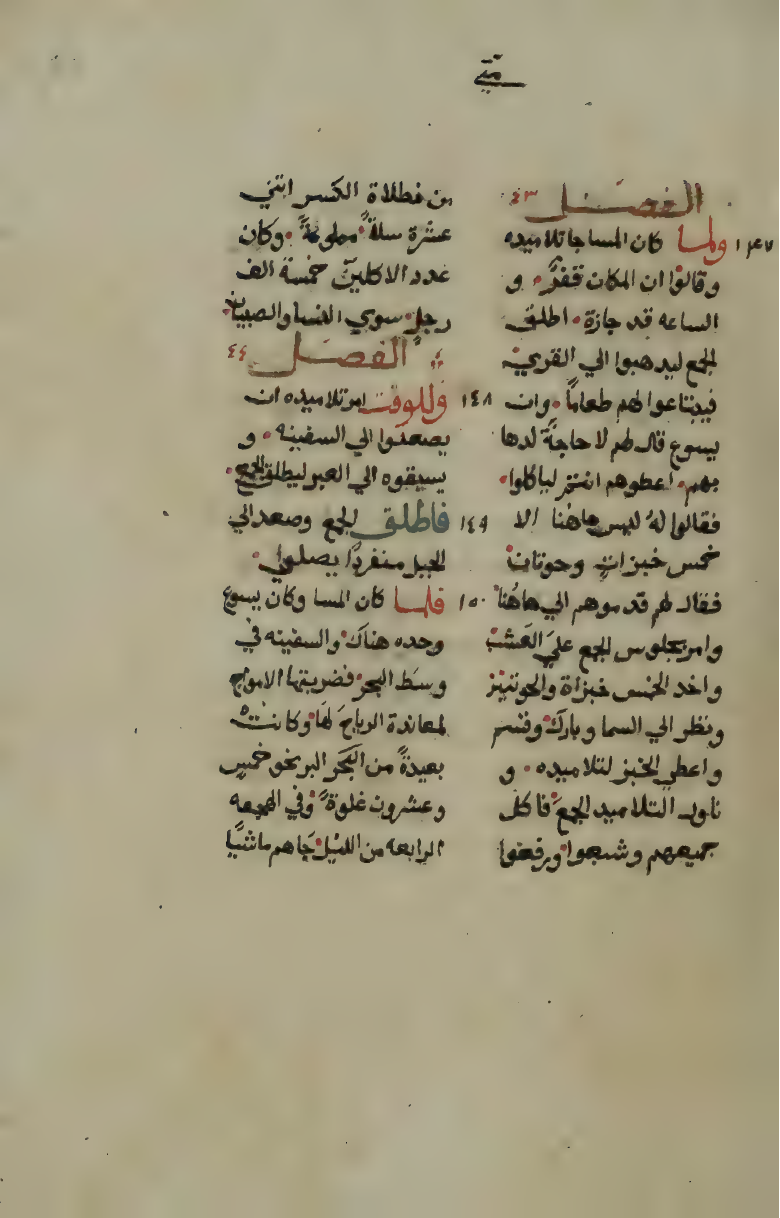 متي
الفصل ٤٣
١٤٧ ولما كان المسا جا تلاميده
وقالوا ان المكان قفرٌ و
الساعه قد جازة اطلق
الجمع ليدهبوا الي القري
فيبتاعوا لهم طعاماً وان
يسوع قال لهم لا حاجةً لدها
بهم اعطوهم انتم لياكلوا
فقالوا لهُ ليس هاهُنا الا
خمس خبزاتٍ وحوتان
فقال لهم قدموهم الي هاهُنا
وامر بجلوس الجمع علي العشب
واخد الخمس خبزاة والحوتين
ونظر الي السما وبارك وقسم
واعطي الخبز لتلاميده و
ناول التلاميد الجمع فاكل
جميعهم وشبعوا ورفعوا
من فطلاة الكسر اثني
عشرة سلةً مملوةً وكان
عدد الاكلين خمسة الف
رجل سوي النسا والصبيان
الفصل ٤٤
١٤٨ وللوقت امر تلاميذه ان
يصعدوا الي السفينه و
يسبقوه الي العبر ليطلق الجمع
١٤٩ فاطلق الجمع وصعد الي
الجبل منفردًا يصلي
١٥٠ فلما كان المسا وكان يسوع
وحده هناك والسفينه في
وسط البحر فضربتها الامواج
لمعاندة الرياح لها وكانت
بعيدةً من البحر البر نحو خمس
وعشرون غلوةً وفي الهجعه
الرابعه من الليل جاهم ماشيًا